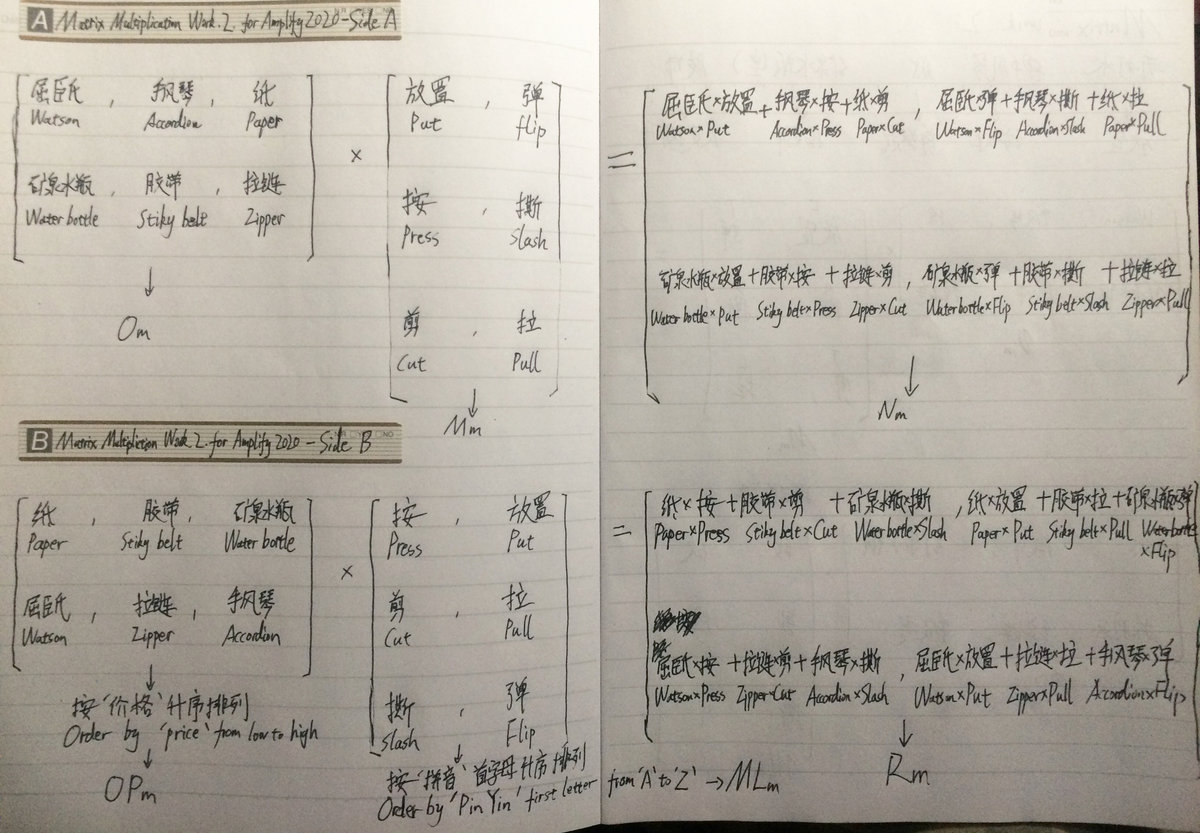 A Matrix Multiplication Work.2. for Amplify 2020-Side A
屈臣氏 , 手风琴 , 纸
Watson Accordion Paper
矿泉水瓶 , 胶带 , 拉链
Water bottle Stiky belt Zipper
Om
×
放置 , 弹
Put flip
按 , 撕
Press slash
剪 , 拉
Cut Pull
Mm
=
屈臣氏×放置+手风琴×按+纸×剪 , 屈臣氏×弹+手风琴×撕+纸×拉
Watson×Put Accordion×Press Paper×Cut Watson×Flip Accordion×Slash Paper×Pull
矿泉水瓶×放置+胶带×按+拉链×剪 , 矿泉水瓶×弹+胶带×撕+拉链×拉
Water bottle×Put Stiky belt×Press Zipper×Cut Water bottle×Flip Stiky belt×Slash Zipper×Pull
Nm
B Matrix Multipliction Work 2. for Amplify 2020-Side B
纸 , 胶带 , 矿泉水瓶
Paper Stiky belt Water bottle
屈臣氏 , 拉链 , 手风琴
Watson Zipper Accordion
按'价格'升序排列
Order by 'price' from low to high
OPm
×
按 , 放置
Press Put
剪 , 拉
Cut Pull
撕 , 弹
Slash Flip
按'拼音'首字母升序排列
Order by 'Pin Yin' first letter from 'A' to 'Z' → MLm
=
纸×按+胶带×剪+矿泉水瓶×撕 , 纸×放置+胶带×拉+矿泉水瓶×弹
Paper×Press Stiky belt×Cut Water bottle×Slash Paper×Put Stiky belt×Pull Water bottle
×Flip
屈臣氏×按+拉链×剪+手风琴×撕 , 屈臣氏×放置+拉链×拉+手风琴×弹
Watson×Press Zipper×Cut Accordion×Slash Watson×Put Zipper×Pull Accordion×Flip
Rm